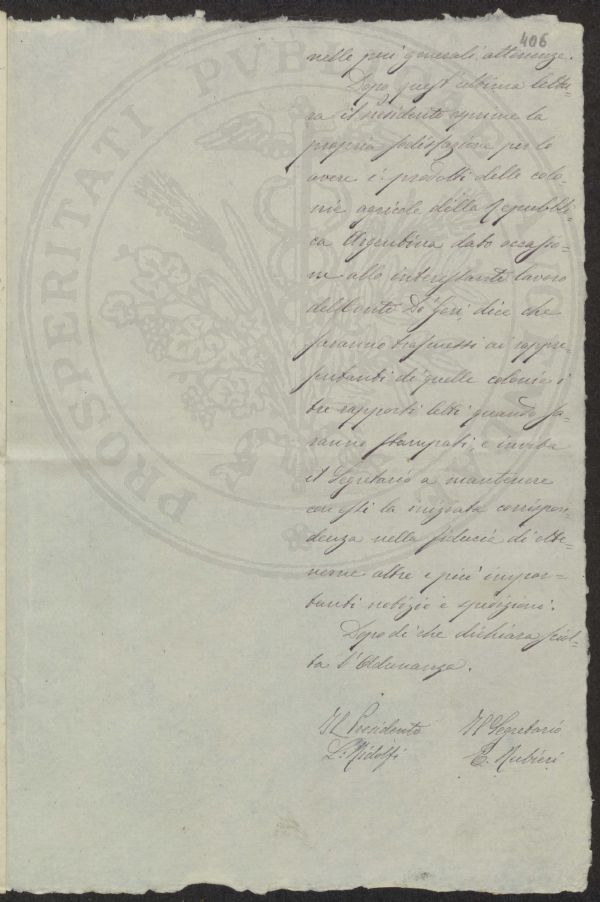 406
nelle più generali attenenze.
Dopo quest'ultima lettu-
ra il Presidente esprime la
propria sodisfazione per lo
avere i prodotti delle colo-
nie agricole della Repubbli-
ca Argentina dato occasio-
ne allo interessante lavoro
del Conte De' Gori, dice che
saranno trasmessi ai rappre-
sentanti di quelle colonie i
tre rapporti letti quando sa-
ranno stampati, e invita
il Segretario a mantenere
con essi la iniziata corrispon-
denza nella fiducia di otte-
nerne altre e più impor-
tanti notizie e spedizioni.
Dopo di che dichiara sciol-
ta l'Adunanza.
Il Presidente Il Segretario
L. Ridolfi E. Rubieri
PROSPERITATI PUBLICAE